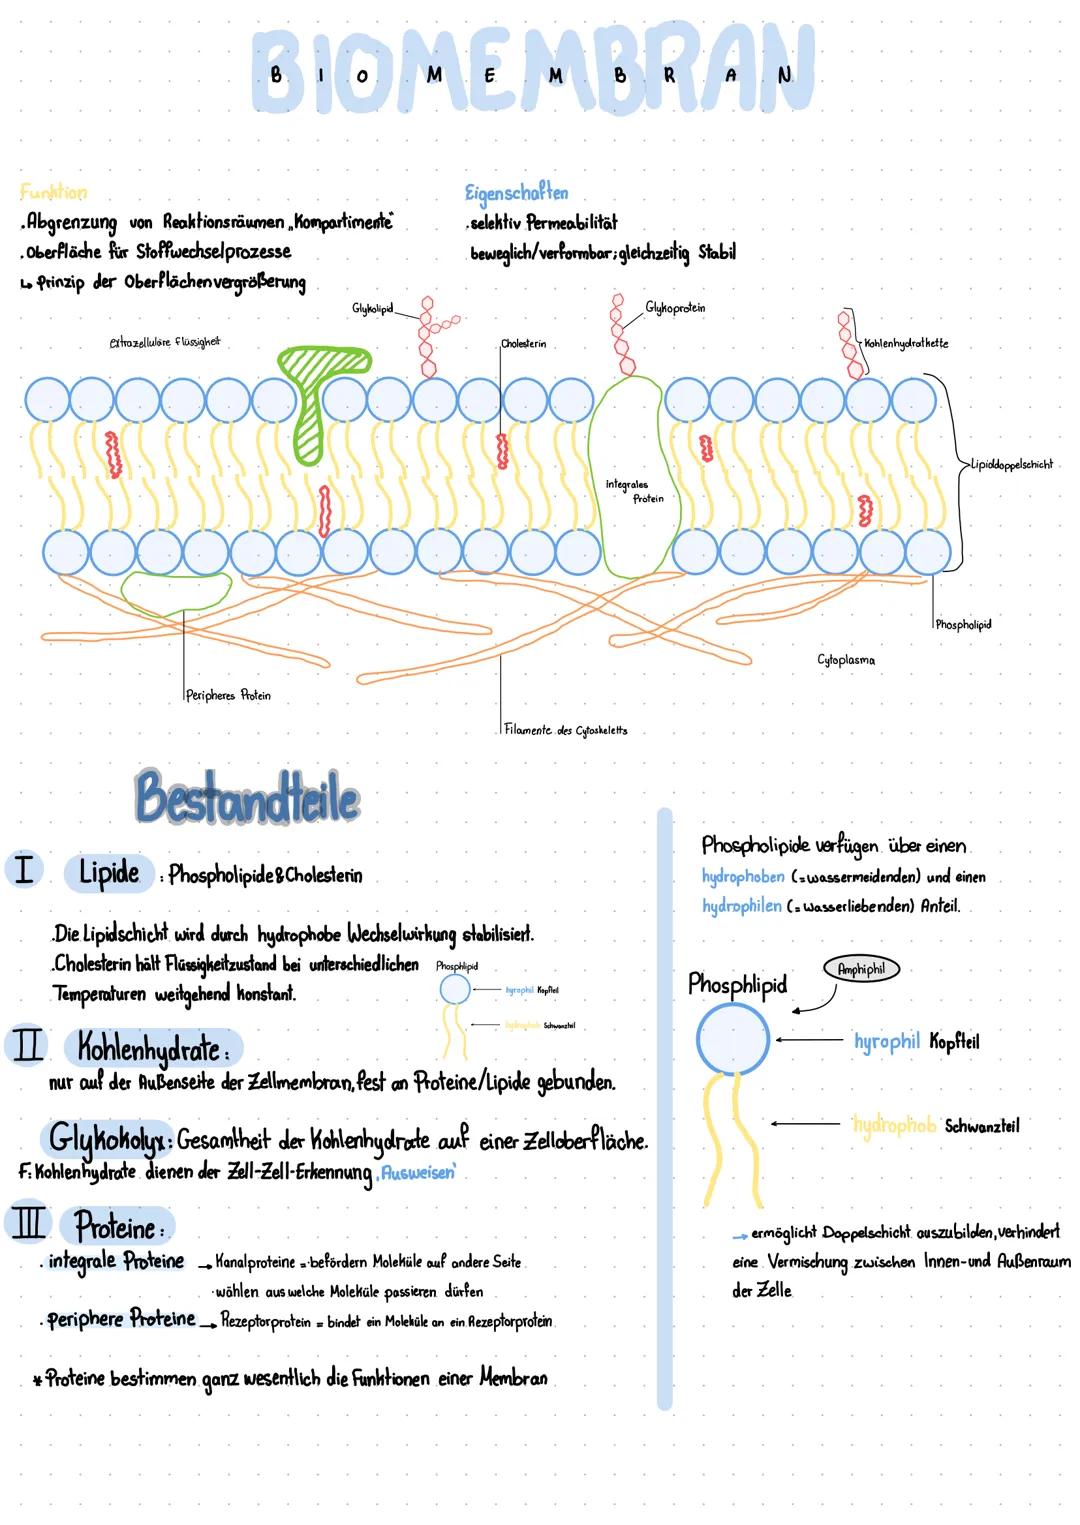 BIOMEMBRAN
B I O M E M B R A N
Funktion
.Abgrenzung von Reaktionsräumen „Kompartimente"
.Oberfläche für Stoffwechselprozesse
↳ Prinzip der Oberflächenvergrößerung
Eigenschaften
.selektiv Permeabilität
beweglich/verformbar; gleichzeitig Stabil
Glykolipid
Glykoprotein
extrazelluläre Flüssigkeit
Cholesterin
Kohlenhydratkette
Lipiddoppelschicht
integrales
Protein
Phospholipid
Cytoplasma
Peripheres Protein
Filamente des Cytoskeletts
Bestandteile
I Lipide : Phospholipide & Cholesterin
.Die Lipidschicht wird durch hydrophobe Wechselwirkung stabilisiert.
.Cholesterin hält Flüssigkeitzustand bei unterschiedlichen
Temperaturen weitgehend konstant.
Phosphlipid
hyrophil Kopfteil
hydrophob Schwanzteil
II Kohlenhydrate:
nur auf der Außenseite der Zellmembran, fest an Proteine/Lipide gebunden.
Glykokolyx: Gesamtheit der Kohlenhydrate auf einer Zelloberfläche.
F: Kohlenhydrate dienen der Zell-Zell-Erkennung ,Ausweisen'
III Proteine:
. integrale Proteine → Kanalproteine = befördern Moleküle auf andere Seite
· wählen aus welche Moleküle passieren dürfen
. periphere Proteine → Rezeptorprotein = bindet ein Molekül an ein Rezeptorprotein
* Proteine bestimmen ganz wesentlich die Funktionen einer Membran
Phospholipide verfügen über einen
hydrophoben (=wassermeidenden) und einen
hydrophilen (=wasserliebenden) Anteil.
Amphiphil
Phosphlipid
hyrophil Kopfteil
hydrophob Schwanzteil
→ ermöglicht Doppelschicht auszubilden, verhindert
eine Vermischung zwischen Innen-und Außenraum
der Zelle